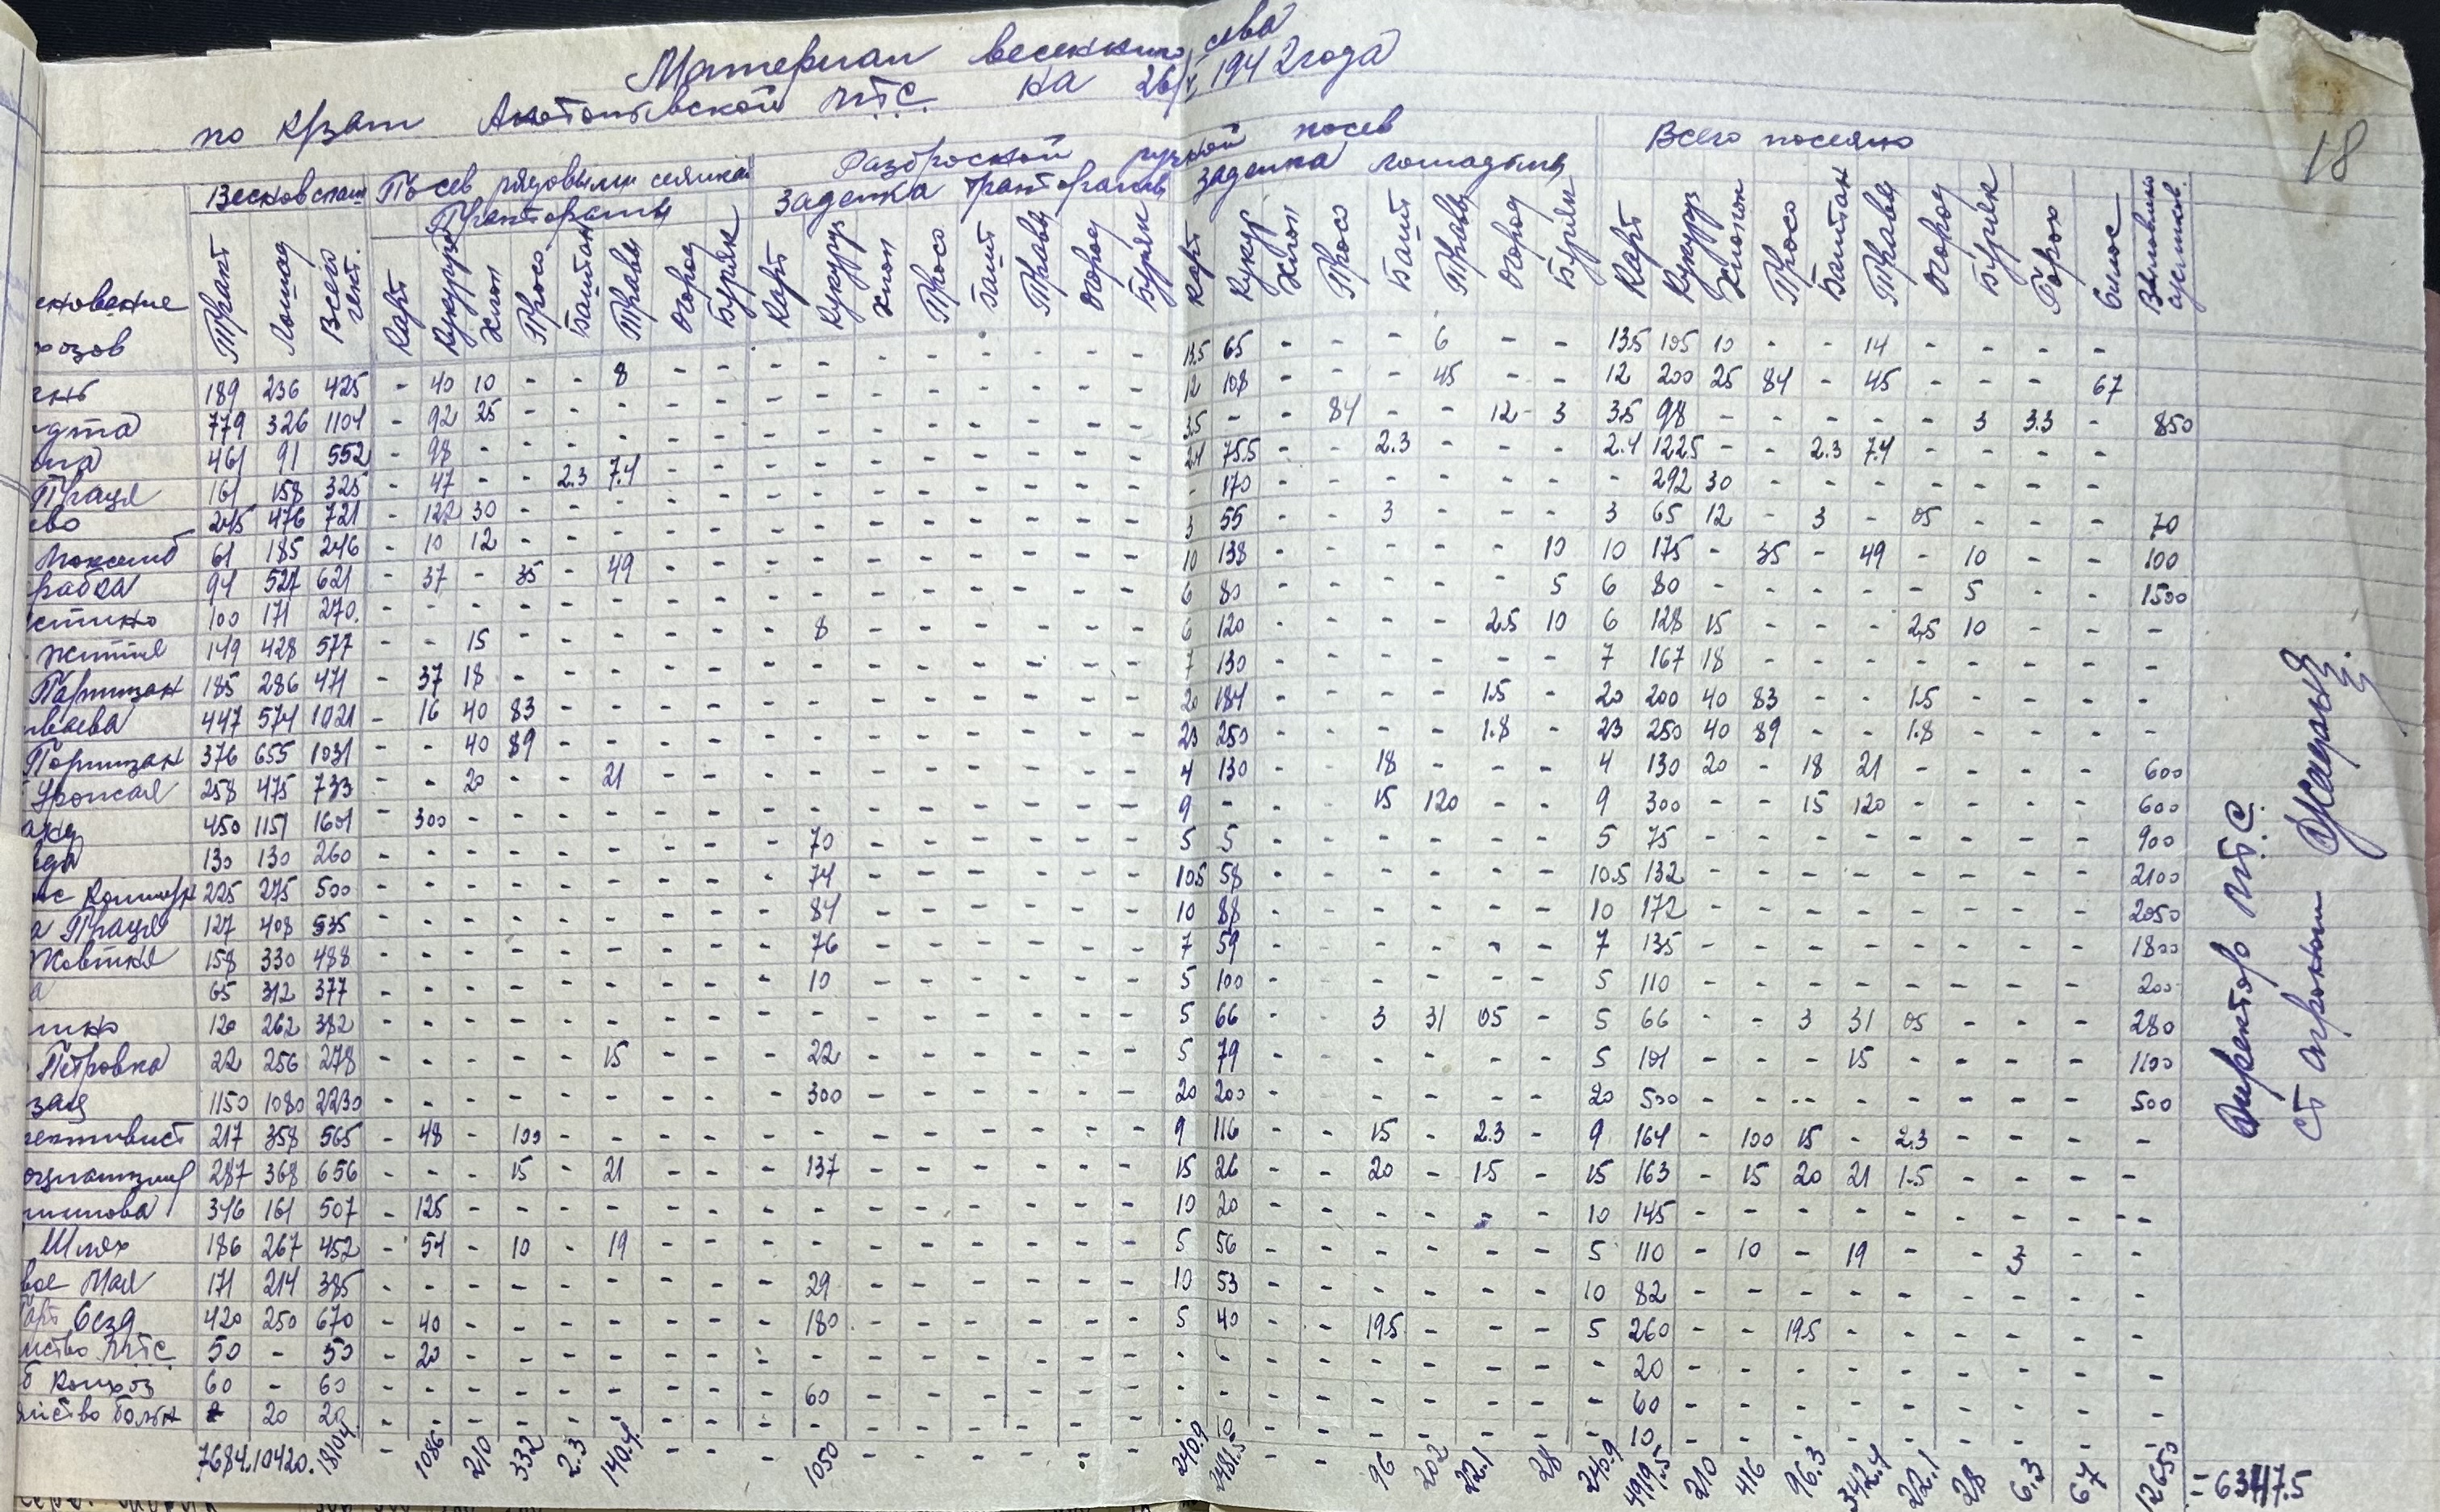 Материал весеннего сева
по к/зам Анатольевской МТС на 26/V 1942 года
18
Весновспаш Посев рядовыми сеялками Разбросной ручной посев Всего посеяно
Тракторами Заделка тракторами заделка лошадьми
Тракт Лошад Всего гект. Карт Кукуруз Хлопок Просо Баштан Травы Огород Буряк Карт Кукуруз Хлоп Просо Башт Травы Огород Буряк Карт Кукур Хлопок Просо Башт Травы Огород Буряк Карт Кукуруз Хлопок Просо Баштан Травы Огород Буряк Горох Силос
189 236 425 - 40 10 - - 8 - - - - - - - - - - 13.5 65 - - - 6 - - 13.5 105 10 - - 14 - - - -
779 326 1104 - 92 25 - - - - - - - - - - - - - 12 108 - - - 45 - - 12 200 25 84 - 45 - - - 67
461 91 552 - 98 - - - - - - - - - - - - - - 3.5 - - 84 - - 12 3 3.5 98 - - - - - 3 3.3 - 850
Праця 161 158 325 - 47 - - 2.3 7.4 - - - - - - - - - - 2.4 75.5 - - 2.3 - - - 2.4 122.5 - - 2.3 7.4 - - - -
ево 245 476 721 - 122 30 - - - - - - - - - - - - - - 170 - - - - - - - 292 30 - - - - - - -
61 185 246 - 10 12 - - - - - - - - - - - - - 3 55 - - 3 - - - 3 65 12 - 3 - 05 - - - 70
94 527 621 - 37 - 35 - 49 - - - - - - - - - - 10 138 - - - - - 10 10 175 - 35 - 49 - 10 - - 100
100 171 270 - - - - - - - - - - - - - - - - 6 80 - - - - - 5 6 80 - - - - - 5 - - 1500
Життя 149 428 577 - - 15 - - - - - - 8 - - - - - - 6 120 - - - - 2.5 10 6 128 15 - - - 2.5 10 - - -
Партизан 185 286 471 - 37 18 - - - - - - - - - - - - - 7 130 - - - - - - 7 167 18 - - - - - - - -
447 574 1021 - 16 40 83 - - - - - - - - - - - - 20 184 - - - - 1.5 - 20 200 40 83 - - 1.5 - - - -
Партизан 376 655 1031 - - 40 89 - - - - - - - - - - - - 23 250 - - - - 1.8 - 23 250 40 89 - - 1.8 - - - -
Урожая 258 475 733 - - 20 - - 21 - - - - - - - - - - 4 130 - - 18 - - - 4 130 20 - 18 21 - - - - 600
450 1151 1601 - 300 - - - - - - - - - - - - - - 9 - - - 15 120 - - 9 300 - - 15 120 - - - - 600
130 130 260 - - - - - - - - - 70 - - - - - - 5 5 - - - - - - 5 75 - - - - - - - - 900
225 275 500 - - - - - - - - - 74 - - - - - - 10.5 58 - - - - - - 10.5 132 - - - - - - - - 2100
а Праця 127 408 535 - - - - - - - - - 84 - - - - - - 10 88 - - - - - - 10 172 - - - - - - - - 2050
Жовтня 158 330 488 - - - - - - - - - 76 - - - - - - 7 59 - - - - - - 7 135 - - - - - - - - 1800
а 65 312 377 - - - - - - - - - 10 - - - - - - 5 100 - - - - - - 5 110 - - - - - - - - 200
120 262 382 - - - - - - - - - - - - - - - - 5 66 - - 3 31 05 - 5 66 - - 3 31 05 - - - 280
Петровка 22 256 278 - - - - - 15 - - - 22 - - - - - - 5 79 - - - - - - 5 101 - - - 15 - - - - 1100
1150 1080 2230 - - - - - - - - - 300 - - - - - - 20 200 - - - - - - 20 500 - - - - - - - - 500
лективист 217 358 565 - 48 - 100 - - - - - - - - - - - - 9 116 - - 15 - 2.3 - 9 164 - 100 15 - 2.3 - - - -
287 368 656 - - - 15 - 21 - - - 137 - - - - - - 15 26 - - 20 - 1.5 - 15 163 - 15 20 21 1.5 - - - -
346 161 507 - 125 - - - - - - - - - - - - - - 10 20 - - - - - - 10 145 - - - - - - - - -
Шлях 186 267 452 - 54 - 10 - 19 - - - - - - - - - - 5 56 - - - - - - 5 110 - 10 - 19 - - 3 - -
вое Мая 171 214 385 - - - - - - - - - 29 - - - - - - 10 53 - - - - - - 10 82 - - - - - - - - -
420 250 670 - 40 - - - - - - - 180 - - - - - - 5 40 - - 19.5 - - - 5 260 - - 19.5 - - - - - -
йство МТС 50 - 50 - 20 - - - - - - - - - - - - - - - - - - - - - - - 20 - - - - - - - - -
б Колхоз 60 - 60 - - - - - - - - - 60 - - - - - - - - - - - - - - - 60 - - - - - - - - -
яйство больн 20 20 - - - - - - - - - - - - - - - - - 10 - - - - - - - 10 - - - - - - - - -
7684. 10420. 18104. - 1086 210 332 2.3 140.4. - - - 1050 - - - - - - 240.9 2481.5 - - 96 202 22.1 28 240.9 4919.5 210 416 96.3 342.4 22.1 28 6.3 67 12650 = 6347.5
Директор МТС
Ст агроном